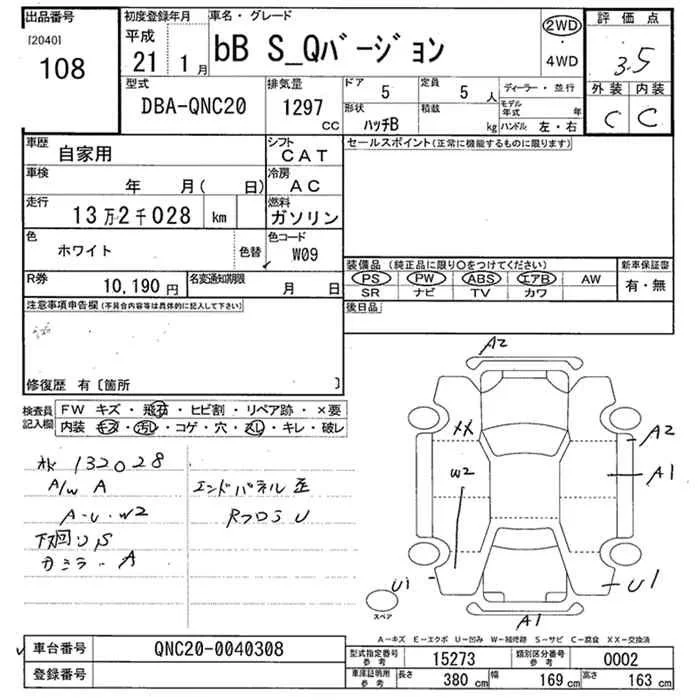 出品番号
[2040]
108
初度登録年月
平成
21 1月
車名・グレード
bB S_Qバージョン
2WD
・
4WD
評価点
3.5
外装 内装
C C
型式
DBA-QNC20
排気量
1297
CC
ドア 5
定員 5人
ディーラー・並行
形状
ハッチB
積載 kg
モデル年式 年
ハンドル 左・右
車歴
自家用
シフト
CAT
セールスポイント(正常に機能するものに限ります)
車検
年 月( 日)
冷房
AC
走行
13万2千028 km
燃料
ガソリン
色
ホワイト
色替
色コード
W09
装備品 (純正品に限り○をつけてください)
新車保証書
PS PW ABS エアB AW
有・無
SR ナビ TV カワ
R券
10,190円
名変通知期限
月 日
後日品
注意事項申告欄(不具合内容等は具体的に記入して下さい)
修復歴 有〔箇所 〕
検査員
記入欄
FW キズ・飛石・ヒビ割・リペア跡・×要
内装 キズ・汚レ・コゲ・穴・スレ・キレ・破レ
132028
A/W A
A-U・W2
下回りS
カミラーA
エンドパネル歪
RフロSU
A2
XX
A2
W2
A1
U1
U1
A1
スペア
A-キズ E-エクボ U-凹み W-補修跡 S-サビ C-腐食 XX-交換済
車台番号
QNC20-0040308
登録番号
型式指定番号
参考
15273
類別区分番号
参考
0002
車庫証明用
参考
長さ 380 cm
幅 169 cm
高さ 163 cm